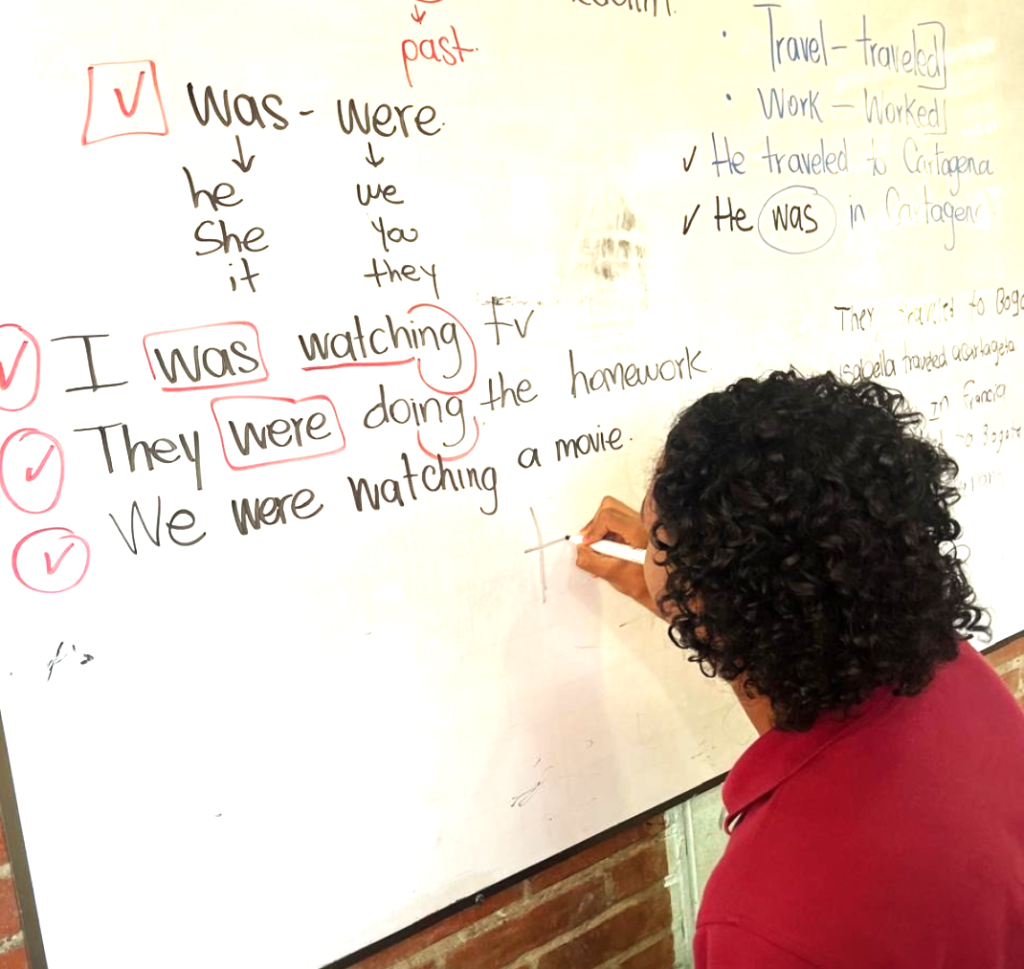 past.
was - were.
he we
She You
it they
I was watching tv
They were doing the homework.
We were watching a movie.
• Travel - traveled
• Work - Worked
✓ He traveled to Cartagena
✓ He was in Cartagena
They to Bogo
traveled
in Francia
Bogota